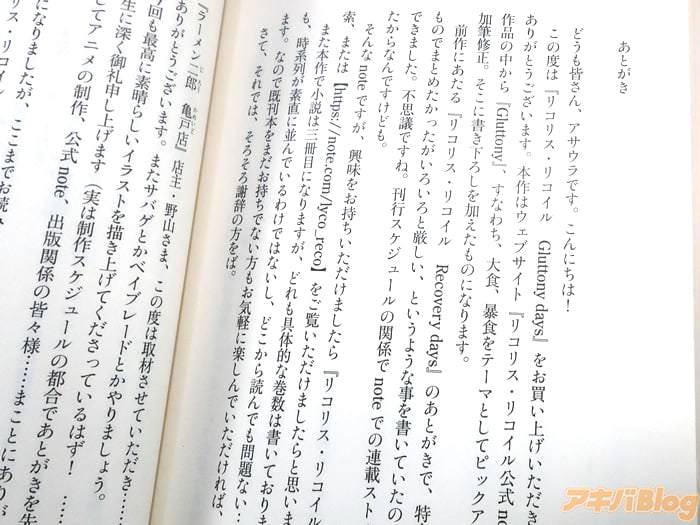 あとがき
どうも皆さん、アサウラです。こんにちは！
この度は『リコリス・リコイル Gluttony days』をお買い上げいただき
ありがとうございます。本作はウェブサイト『リコリス・リコイル公式no
作品の中から『Gluttony』、すなわち、大食、暴食をテーマとしてピックア
加筆修正。そこに書き下ろしを加えたものになります。
前作にあたる『リコリス・リコイル Recovery days』のあとがきで、特
ものでまとめたかったがいろいろと厳しい、というような事を書いていたの
できました。不思議ですね。刊行スケジュールの関係でnoteでの連載スト
たからなんですけども。
そんなnoteですが、興味をお持ちいただけましたら『リコリス・リコイル
索、または【https://note.com/lyco_reco】をご覧いただけましたらと思いま
また本作で小説は三冊目になりますが、どれも具体的な巻数は書いておりま
も、時系列が素直に並んでいるわけではないし、どこから読んでも問題ない…
ます。なので既刊本をまだお持ちでない方もお気軽に楽しんでいただければ、
さて、それでは、そろそろ謝辞の方をば。
『ラーメン二郎 亀戸店』店主・野山さま、この度は取材させていただき……
ありがとうございます。またサバゲとかベイブレードとかやりましょう。
今回も最高に素晴らしいイラストを描き上げてくださっているはず！ ……
生に深く御礼申し上げます（実は制作スケジュールの都合であとがきを先
してアニメの制作、公式note、出版関係の皆々様……まことにありが
になりましたが、ここまでお読み
リス・リコイル
アキバBlog